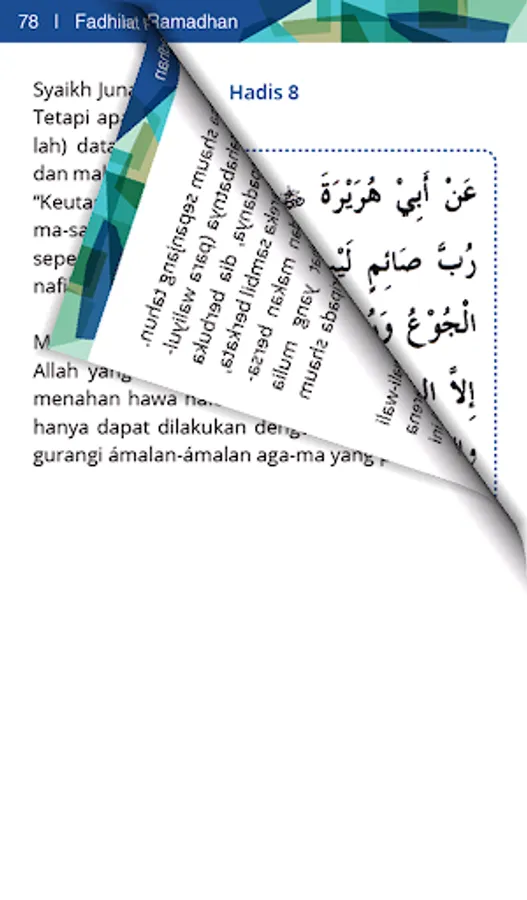 78 | Fadhilat Ramadhan
Syaikh Juna
Tetapi apa
lah) data
dan mal
“Keuta
ma-sa
sepe
nafi
M
Allah yang
menahan hawa na
hanya dapat dilakukan deng
gurangi ámalan-ámalan aga-ma yang p
Hadis 8
عَنْ أَبِيْ هُرَيْرَةَ
رُبَّ صَائِمٍ لَيْ
الْجُوْعُ وَرُ
إِلاَّ ال
shaum sepanjang tahun.
sahabatnya (para waliyul-
padanya, dia berbuka
reka sambil berkata,
an makan bersa-
at yang mulia
pada shaum
ali-wali
rena
ini